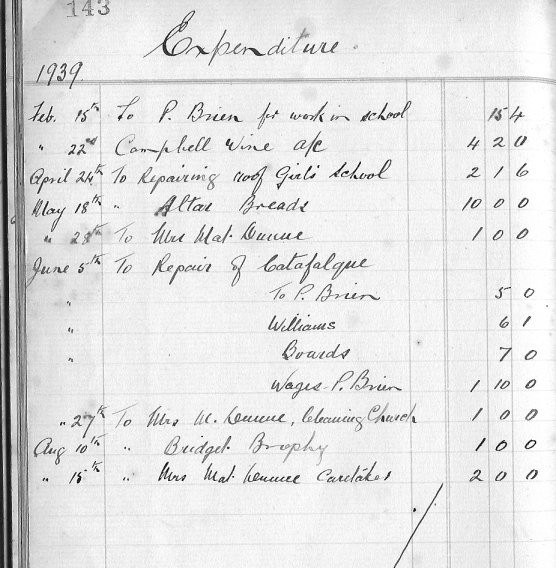 143
Expenditure.
1939.
Feb. 15th To P. Brien for work in school 15 4
" 22nd Campbell Wine a/c 4 2 0
April 24th To Repairing roof Girls School 2 1 6
May 18th " Altar Breads 10 0 0
" 28th To Mrs Mat. Dunne 1 0 0
June 5th To Repair of Catafalque
" To P. Brien 5 0
" Williams 6 1
" Boards 7 0
Wages P. Brien 1 10 0
" 27th To Mrs M. Dunne, Cleaning Church 1 0 0
Aug 10th " Bridget Brophy 1 0 0
" 15th " Mrs Mat Dunne Caretaker 2 0 0